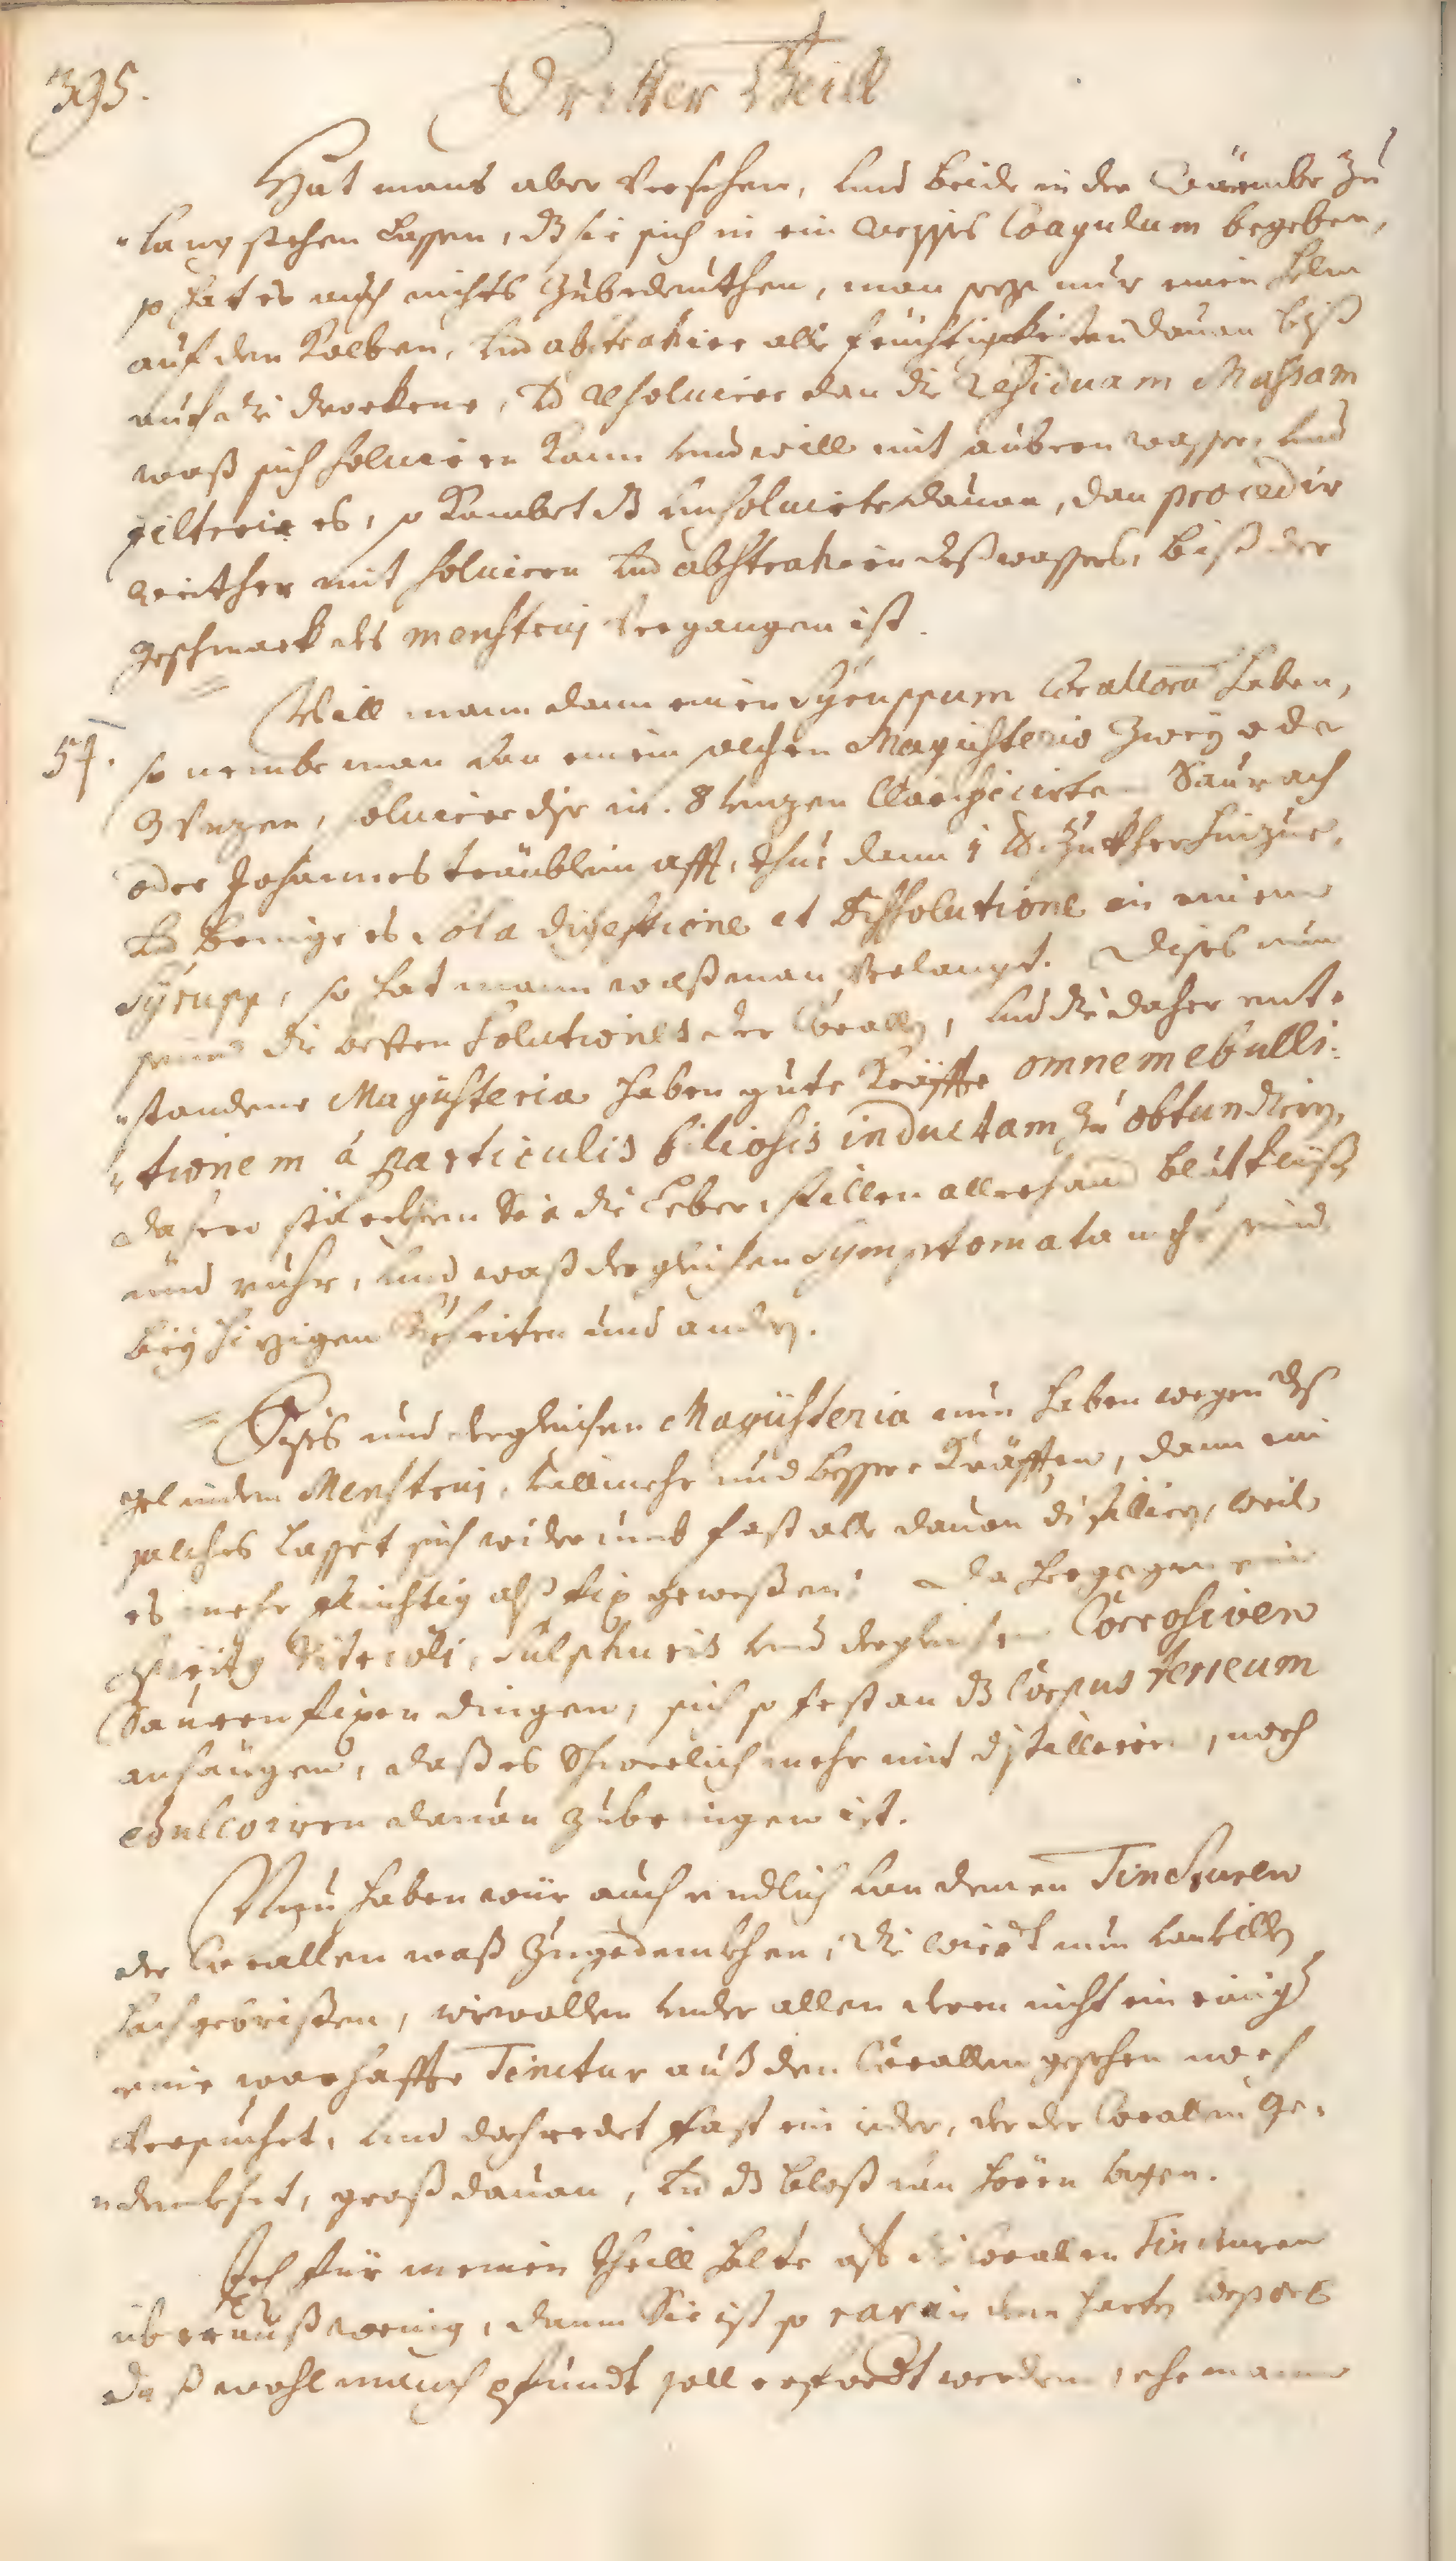 395.
Dritter Theill
Hat mans aber Versehen, und beide in der Wärmbe zu
lang stehen Lassen, dz sie sich in ein weisses Coagulum begeben,
so hat es auch nichts Zubedeuthen, man seze nur einen Helm
auf den Kolben, und abstrahier alle feuchtigkeiten davon biß
auf die druckene, und resoluier dan die residuam Massam
waß sich soluieren kann und will mit anderen wasser, und
filtrier es, so kombet dz unsoluierte davon, dan procedir
weither mit soluieren und abstrahieren deß wassers, biß der
geschmack des menstruj Vergangen ist.
Will mann dann einen Syruppum Corallorũ haben,
54.
so nembe man von einem solchen Magisterio Zwey oder
3 Vnzen, soluier dise in 8 Unzen Clarificirten Saurach
oder Johannes träublein afft, thue dann 1 lb. Zuckher hinzue,
und bringe es sola digestione et dissolutione in einem
Syrupp, so hat mann waß man Verlangt. Dises nun
seind die besten Solutiones der Corallen, und die daher ent-
standene Magisteria haben gute Kräffte omnem ebulli-
tionem a particulis biliosis inductam zu obtundiren,
dahero stärckhen Sie die Leber, stillen allerhand blutflüß
und ruhr, und waß dergleichen Symptomata mehr seind
bey hizigen Kheiten und andern.
Dises und dergleichen Magisteria nun haben wegen deß
gelinden Menstruj, villmehr und bessere Kräfften, dann ein
solches Lasset sich widerumb fast alle davon distilliern, weil
es mehr flüchtig alß fix gewessen. Da hergegen ein
Spiritq Vitrioli, Sulphuris und dergleichen Corrosiven
Sauren fixen dingen, sich so fest an dz Corpus terreum
anhangen, daß es Schwerlich mehr mit distillieren, noch
edulcoriren davon zubringen ist.
Nun haben wür auch endlich von denen Tincturen
der Corallen waß Zugedenckhen, die wirdt nun von villen
hoch gebrisen, wiewollen under allen deren nicht ein einiger
eine warhaffte Tinctur auß den Corallen gesehen noch
Versuchet, und doch redet fast ein ieder, der der Corallen ge-
denckhet, groß davon, und dz bloß von hören sagen.
Ich für meinen theill halte auf die Corallen Tincturen
überauß wenig, dann Sie ist so rar in dem harten Corpore
daß wohl manch pfundt soll erfordt werden, ehe mann